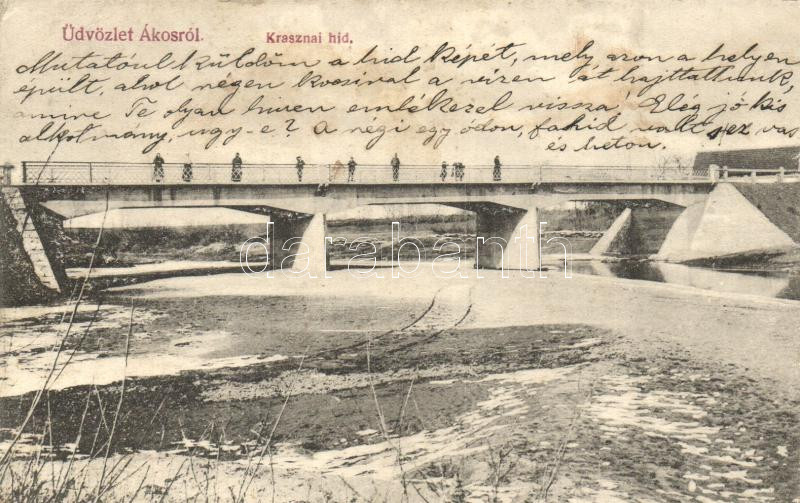 Üdvözlet Ákosról.
Krasznai hid.
Mutatóul küldöm a hid képét, mely azon a helyen
épült, ahol régen kocsival a vizen át hajttattunk,
amire Te olyan huen emlékezel vissza! Elég jó kis
alkotmány, ugy-e? A régi egy ódon, fahid volt s ez vas
és beton.
darabanth